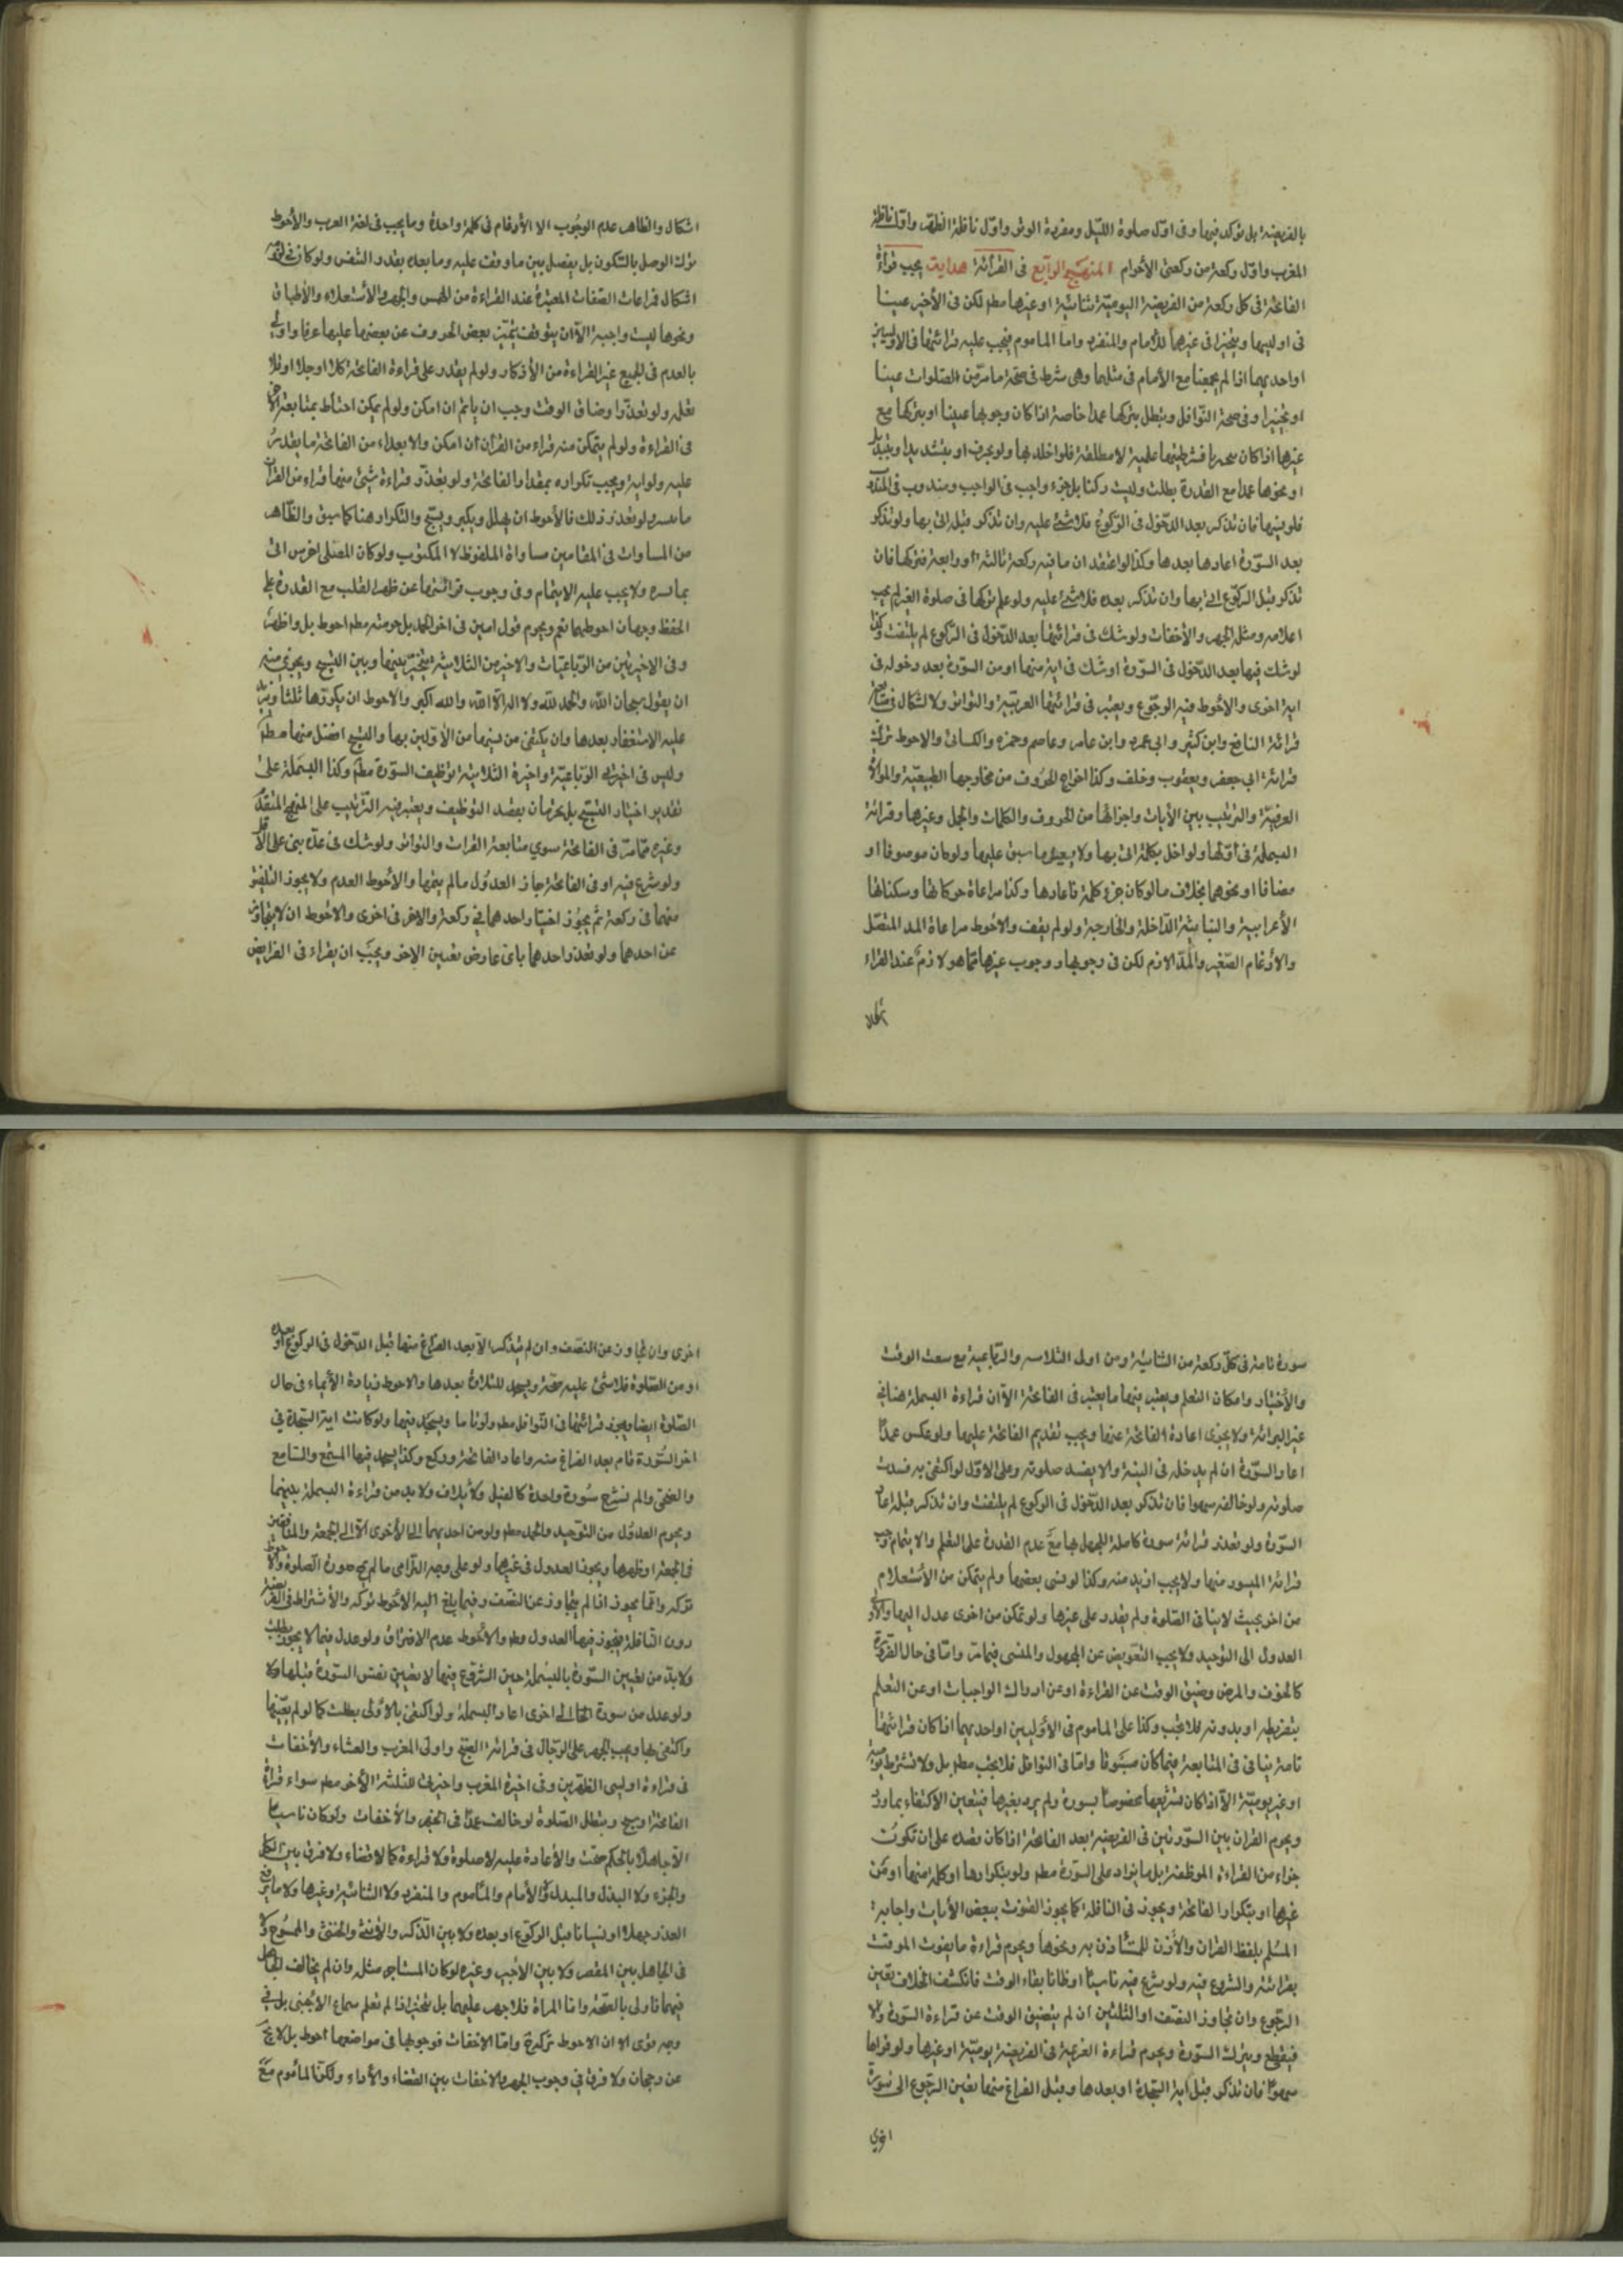 بالفريضة بل يؤكد فيها وفى اوّل صلوة الليل ومفردة الوتر واوّل نافلة الظهر واوّل نافلة
المغرب واوّل ركعة من ركعتى الأحرام المنهج الرابع فى القرائة هداية يجب قراءة
الفاتحة فى كل ركعة من الفريضة اليوميّة ثنائيّة او غيرها مطم لكن فى الأخير عينا
فى اوليها وتخييرا فى غيرهما للأمام والمنفرد واما الماموم فيجب عليه قرائتها فى الاوليين
او احديهما اذا لم يجمعنا مع الأمام فى مثلهما وهى شرط فى صحّة ما مرّ من الصّلوات عينا
او تخييرا وفى صحة النّوافل وتبطل بتركها عمدا خاصة اذا كان وجوبها عينيا او بتركها مع
غيرها اذا كان تخييريا فشرطيتها علمية لا مطلقة فلو اخلد بها ولو بحرف او بتشديد او بتبديل
او نحوها عمدا مع القدرة بطلت وليست ركنا بل جزء واجب فى الواجب ومندوب فى المندوب
فلو نسيها فان تذكر بعد الدّخول فى الرّكوع فلا شئ عليه وان تذكر قبله اتى بها ولو تذكر
بعد السّورة اعادها بعدها وكذا لو اعتقد ان ما فيه ركعة ثالثة او رابعة فتركها فان
تذكر قبل الركوع اتى بها وان تذكر بعده فلا شئ عليه ولو علم تركها فى صلوة الغير لم يجب
اعلامه ومثله الجهر والأخفات ولو شك فى قرائتها بعد الدّخول فى الرّكوع لم يلتفت وكذا
لو شك فيها بعد الدّخول فى السّورة او شك فى اية منها او من السّورة بعد دخوله فى
اية اخرى والأحوط فيه الرجوع ويعتبر فى قرائتها العربيّة والتواتر ولا اشكال فى متابعة
قرائة النافع وابن كثير وابى عمرو وابن عامر وعاصم وحمزه والكسائى والاحوط ترك
قرائة ابى جعفر ويعقوب وخلف وكذا اخراج الحروف من مخارجها الطبيعيّة والموالاة
العرفيّة والترتيب بين الأيات واجزائها من الحروف والكلمات والجمل وغيرها وقرائة
البسملة فى اوّلها ولو اخل بكلمة اتى بها ولا يعيد ما سبق عليها ولو كان موصوفا او
مضافا او نحوهما بخلاف ما لو كان جزء كلمة فاعادها وكذا مراعاة حركاتها وسكناتها
الأعرابية والبنائيّة الدّاخلة والخارجية ولو لم يقف والأحوط مراعاة المد المتّصل
والأدغام الصّغير والمدّ اللازم لكن فى وجوبها ووجوب غيرها ممّا هو لازم عند القراء
اشكال والظاهر عدم الوجوب الا الأدغام فى كلمة واحدة وما يجب فى لغة العرب والأحوط
ترك الوصل بالسّكون بل يفصل بين ما وقف عليه وما بعده بقدر النّفس ولو كان فى لزومه
اشكال فمراعات الصّفات المعتبرة عند القراءة من الهمس والجهر والأستعلاء والأطباق
ونحوها ليست واجبة الّا ان يتوقف تميّز بعض الحروف عن بعضها عليها عرفا واولى
بالعدم فى الجميع غير القراءة من الأذكار ولو لم يقدر على قراءة الفاتحة كلا او جلا او بعضا
تعلّم ولو تعذّرا وضاق الوقت وجب ان ياتم ان امكن ولو لم يمكن احتاط بمتابعة الاخر
فى القراءة ولو لم يتمكن منه قراء من القرآن ان امكن والا بعداء من الفاتحة ما يقدر
عليه ولو اية ويجب تكراره بمقدار الفاتحة ولو تعذّر قراءة شئ منها قراء من القرآن
ما تيسر ولو تعذر ذلك فالأحوط ان يهلل ويكبر ويسبّح والتكرار هنا كما سبق والظّاهر
من المساوات فى المقامين مساواة الملفوظ لا المكتوب ولو كان المصلى اخرس اتى
بما تيسره ولا يجب عليه الايتمام وفى وجوب قرائتها عن ظهر القلب مع القدرة على
الحفظ وجهان احوطهما نعم ويحرم قول امين فى اخر الحمد بل حرمته مطم احوط بل واظهر
وفى الاخيرتين من الرّباعيّات والاخيرة من الثلاثية يتخيّر بينها وبين التسبيح ويجزى منه
ان يقول سبحان الله والحمد لله ولا اله الّا الله والله اكبر والاحوط ان يكررّها ثلثا ويزيد
عليه الاستغفار بعدها وان يكتفى من نسيها من الأوّلين بها والتسبيح افضل منها مطم
وليس فى اخيرتى الرّباعيّة واخيرة الثلاثية توظيف السّورة مطم وكذا البسملة على
تقدير اختيار التسبيح بل يحرمان بقصد التوظيف ويعتبر فيه الترتيب على المنهج المتقدّم
وغيره ممّا مرّ فى الفاتحة سوى متابعة القرات والتواتر ولو شك فى عدّه بنى على الاقل
ولو شرع فيه او فى الفاتحة جاز العدول ما لم يتمّها والأحوط العدم ولا يجوز التلفيق
منهما فى ركعة ثمّ يجوز اختيار احدهما فى ركعة والاخر فى اخرى والاحوط ان لا يتجاوز
عن احدهما ولو تعذر احدهما باى عارض تعين الاخر ويجب ان يقراء فى الفرايض
سورة تامة فى كلّ ركعة من الثنائيّة ومن اولى الثلاثية والرّباعية مع سعة الوقت
والأختيار وامكان التعلم ويعتبر فيها ما يعتبر فى الفاتحة الّا ان قراءة البسملة هنا فى
غير البرائة ولا يجزى اعادة الفاتحة عنها ويجب تقديم الفاتحة عليها ولو عكس عمدا
اعاد السّورة ان لم يدخله فى النيّة والا يفسد صلوته وعلى الاوّل لو اكتفى به فسدت
صلوته ولو خالف سهوا فان تذكر بعد الدّخول فى الركوع لم يلتفت وان تذكر قبله اعاد
السّورة ولو تعذر قرائة سورة كاملة للجهل بها مع عدم القدرة على التعلم والايتمام وجب
قرائة الميسور منها ولا يجب ازيد منه وكذا لو نسى بعضها ولم يتمكن من الأستعلام
من اخر بحيث لا ينافى الصّلوة ولم يقدر على غيرها ولو تمكن من اخرى عدل اليها والأولى
العدول الى التوحيد ولا يجب التعويض عن المجهول والمنسى فيما مرّ وامّا فى حال الضّرورة
كالخوف والمرض وضيق الوقت عن القراءة او عن ادراك الواجبات او عن التعلم
بتفريطه او بدونه فلا تجب وكذا على الماموم فى الأوليين او احديهما اذا كان قرائتها
تامة ينافى فى المتابعة فيما كان مسبوقا وامّا فى النوافل فلا يجب مطم بل ولا تشترط يومية
او غير يوميّة الّا اذا كان تشريعها مخصوصا بسورة ولم يرد بغيرها فيتعين الأكتفاء بما ورد
ويحرم القران بين السّورتين فى الفريضة بعد الفاتحة اذا كان قصده على ان تكون
جزاء من القراءة الموظفة بل ما يزاد على السّورة مطم ولو بتكرارها او كلمة منها او من
غيرها او بتكرار الفاتحة ويجوز فى النافلة كما يجوز القنوت ببعض الأيات واجابة
المسلم بلفظ القران والأذن للمستأذن به ونحوها ويحرم قراءة ما يفوت الموقت
بقرائته والشروع فيه ولو شرع فيه ناسيا او ظانا بقاء الوقت فانكشف الخلاف تعين
الرّجوع وان تجاوز النصف او الثلثين ان لم يتضيق الوقت عن قراءة السّورة والا
فيقطع ويترك السّورة ويحرم قراءة العزيمة فى الفريضة يوميّة او غيرها ولو قراها
سهوا فان تذكر قبل اية السّجدة او بعدها وقبل الفراغ منها تعين الرّجوع الى سورة
اخرى
اخرى وان تجاوز عن النصف وان لم يتذكر الّا بعد الفراغ منها قبل الدّخول فى الركوع او بعده
او من الصّلوة فلا شئ عليه صحّة ويسجد للتلاوة بعدها والاحوط زيادة الأيماء فى حال
الصّلوة ايضا ويجوز قرائتها فى النّوافل مطم ولو تاما ويسجد فيها ولو كانت اية السّجدة فى
اخر السّورة قام بعد الفراغ منه واعاد الفاتحة وركع وكذا يسجد فيها المستمع والسّامع
والضحى والم نشرح سورة واحدة كالفيل ولايلاف ولا بد من قراءة البسملة بينهما
ويحرم العدول من التوحيد والجحد مطم ولو من احديهما الى الأخرى الّا الى الجمعة والمنافقين
فى الجمعة او ظهرها ويجوز العدول فى غيرها ولو على وجه التّرامى ما لم يمح صورة الصّلوة والأحوط
تركه وانّما يجوز اذا لم يتجاوز عن النّصف وفيما بلغ اليه الأحوط تركه والأشتراط فى الفريضة
دون النّافلة فيجوز فيها العدول مطم والأحوط عدم الافتراق ولو عدل فيما لا يجوز بطلت
ولا بدّ من تعيين السّورة بالبسملة حين الشّروع فيها لا تعيين نفس السّورة قبلها ولا
ولو عدل من سورة الى اخرى اعاد البسملة ولو اكتفى بالأولى بطلت كما لو لم يعيّنها
واكتفى بها ويجب الجهر على الرّجال فى قرائة الصّبح واولى المغرب والعشاء والأخفات
فى قراءة اوليى الظهرين وفى اخيرة المغرب واخيرتى الثلثة الأخر مطم سواء قراء
الفاتحة او سبح وتبطل الصّلوة لو خالف عمدا فى الجهر والأخفات ولو كان ناسيا
او جاهلا بالحكم صحّت والأعادة عليه لا صلوة ولا قراءة كما لا قضاء ولا فرق بين الكل
والجزء ولا البدل والمبدل ولا الأمام والماموم والمنفرد ولا الثنائية وغيرها ولا ما يرتفع
العذر جهلا او نسيانا قبل الركوع او بعده ولا بين الذّكر والأنثى والخنثى والممسوح ولا
فى الجاهل بين المقصر ولا بين الأجير وغيره لو كان المستاجر مثله وان لم يخالف الجاهل
فيهما فاولى بالصّحة وامّا المراة فلا جهر عليهما بل تتخيّر اذا لم تعلم سماع الأجنبى بل فى
وجه قوى الا ان الاحوط تركه وامّا الاخفات فوجوبها فى مواضعها احوط بل لا يخ
عن رجحان ولا فرق فى وجوب الجهر والاخفات بين القضاء والأداء ولكن الماموم مع